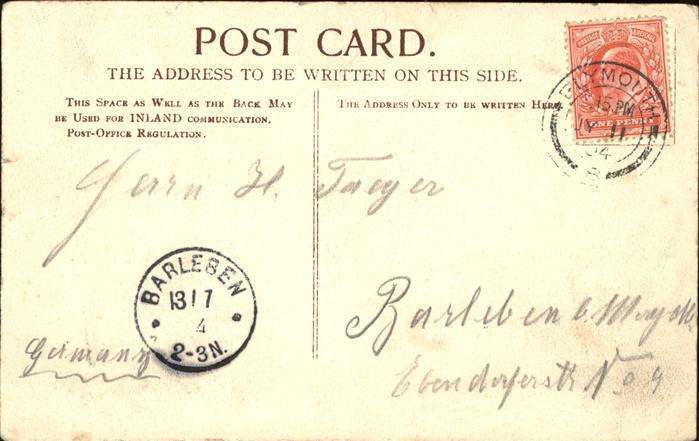 POST CARD.
THE ADDRESS TO BE WRITTEN ON THIS SIDE.
THIS SPACE AS WELL AS THE BACK MAY
BE USED FOR INLAND COMMUNICATION.
POST-OFFICE REGULATION.
THE ADDRESS ONLY TO BE WRITTEN HERE
POSTAGE REVENUE
ONE PENNY
PLYMOUTH
15 PM
11
04
Herrn H. Jaeger
BARLEBEN
13 1 7
4
2-3N.
Barleben b.
Germany
Ebendorferstr No 9